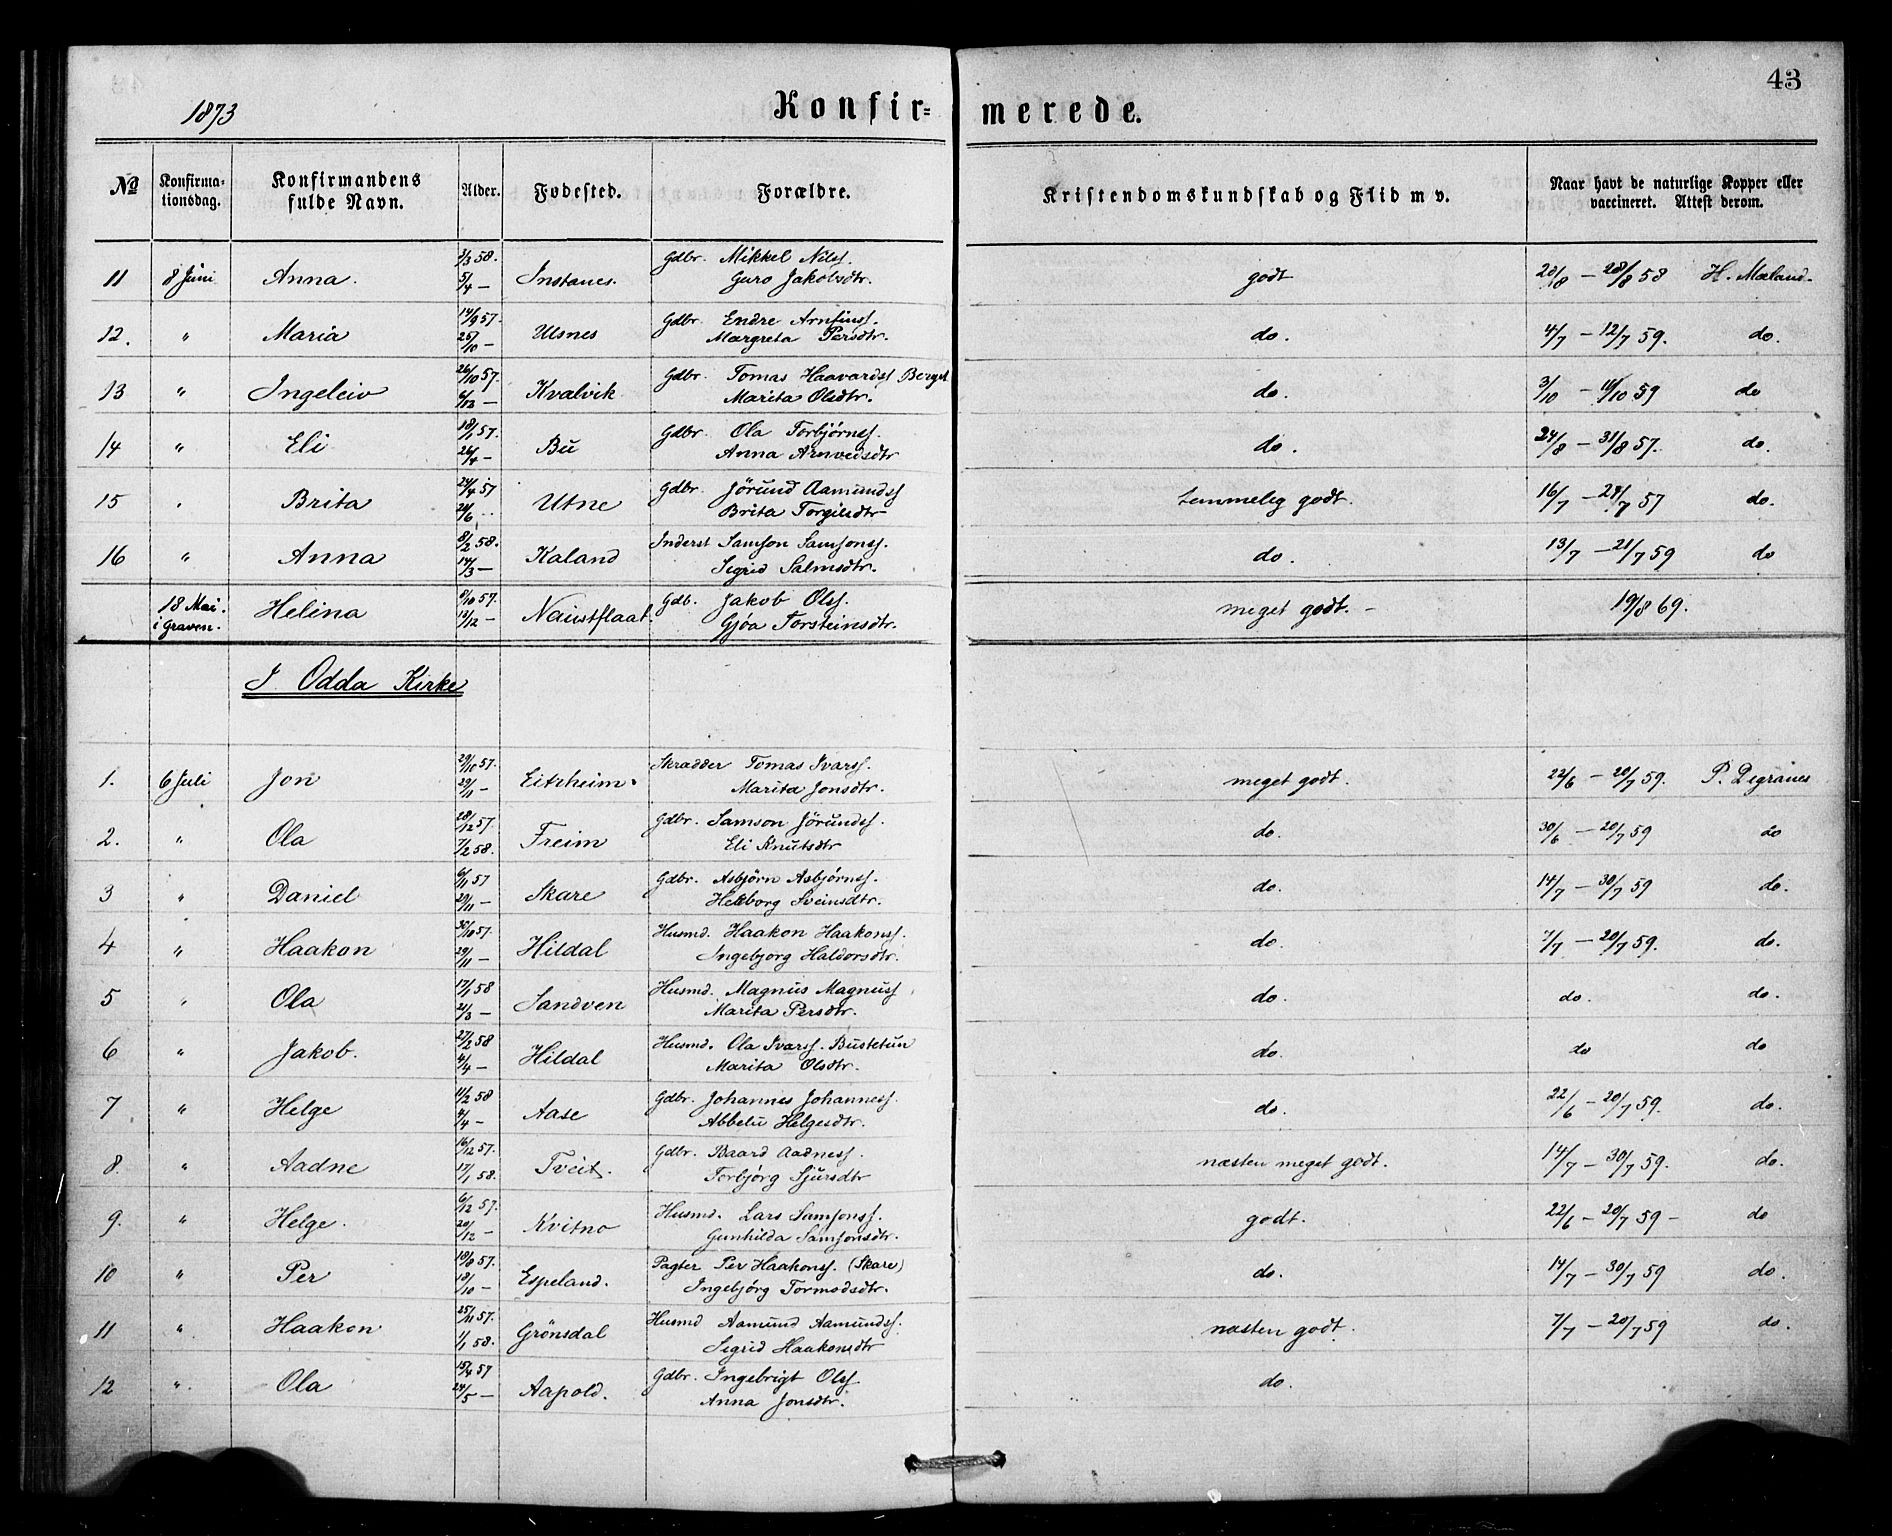 43
1873
Konfir= merede.
No
Konfirma-
tionsdag.
Konfirmandens
fulde Navn.
Alder.
Fødested.
Forældre.
Kristendomskundskab og Flid m v.
Naar havt de naturlige Kopper eller
vaccineret. Attest derom.
11 8 Juni Anna. 3/3 58. 5/4 — Instanes. Gdbr. Mikkel Nilss. Guro Jakobsdtr. godt 20/8 — 28/8 58 H. Mæland.
12. " Maria 14/9 57. 25/10 — Ulsnes Gdbr. Endre Arnfinss. Margreta Persdtr. do. 4/7 — 12/7 59. do.
13 " Ingeleiv 26/10 57. 6/12 — Kvalvik Gdbr. Tomas Haavardss Berget Marita Olsdtr. do. 3/10 — 11/10 59 do
14 " Eli 18/1 57. 26/4 — Bu Gdbr. Ola Torbjørnss. Anna Arnvedsdtr do. 24/8 — 31/8 57. do.
15 " Brita 24/4 57 24/6 .. Utne Gdbr. Jörund Aamundss Brita Torgilsdtr temmelig godt. 16/7 — 24/7 57 do.
16 " Anna 8/2 58. 14/3 — Kaland Inderst Samson Samsonss. Sigrid Salmsdtr. do. 13/7 — 21/7 59 do
18 Mai. i Graven. Helina 8/10 57. 12/12 — Naustflaat. Gdb. Jakob Olss. Gjøa Torsteinsdtr. meget godt. — 19/8 69.
I Odda Kirke
1. 6 Juli Jon 29/10 57. 29/11 — Eitrheim. Skrædder Tomas Ivarss. Marita Jonsdtr. meget godt. 22/6 — 20/7 59. P. Degranes
2. " Ola 28/12 57. 7/2 58. Freim Gdbr. Samson Jörundss. Eli Knutsdtr do. 30/6 — 20/7 59 do
3 " Daniel 6/11 57 29/11 — Skare Gdbr. Asbjörn Asbjörnss. Helborg Sveinsdtr. do. 14/7 — 30/7 59 do.
4 " Haakon 30/10 57. 29/11 — Hildal Husmd. Haakon Haakonss. Ingebjorg Haldorsdtr. do. 7/7 — 20/7 59. do.
5 " Ola 17/1 58 21/3 — Sandven Husmd. Magnus Magnuss Marita Persdtr. do. do. do.
6 " Jakob. 27/2 58 4/4 — Hildal Husmd. Ola Ivarss. Bustetun Marita Olsdtr. do. do do
7 " Helge 11/2 58 4/4 — Aase Gdbr. Johannes Johanness. Abbelu Helgesdtr. do. 22/6 — 20/7 59. do.
8. " Aadne 16/12 57. 17/1 58. Tveit Gdbr. Baard Aadness. Torbjørg Sjursdtr næsten meget godt. 14/7 — 30/7 59. do.
9. " Helge. 6/12 57. 20/12 — Kvitno Husmd. Lars Samsonss. Gunhilda Samsonsdtr. godt. 22/6 — 20/7 59 — do
10 " Per 18/8 57. 18/10 — Espeland. Pagter Per Haakonss. (Skare) Ingebjörg Tormodsdtr. do. 14/7 — 30/7 59 do.
11 " Haakon 25/11 57. 1/1 58. Grönsdal Husmd Aamund Aamundss. Sigrid Haakonsdtr næsten godt. 7/7 — 20/7 59 do.
12 " Ola 15/4 57 24/5 — Aapold. Gdbr. Ingebrigt Olss Anna Jonsdtr. do.